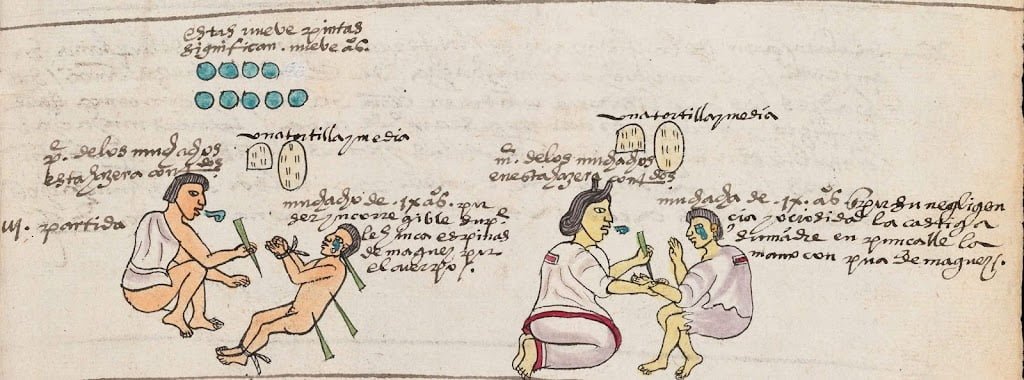 estas nueve pintas
significan nueve aˢ.
una tortilla y media
pᵉ. de los muchachos
esta hazera con dos
iij. partida
muchacho de . ix. aˢ. por
ser yncorregible su pᵉ
le hinca espinas
de maguey por
el cuerpo
una tortilla y media
mᵉ. de los muchachos
en esta hazera con dos
muchacha de . ix. aˢ por su negligen
cia y ociosidad la castiga
su madre en puncalle la
mano con pua de maguey